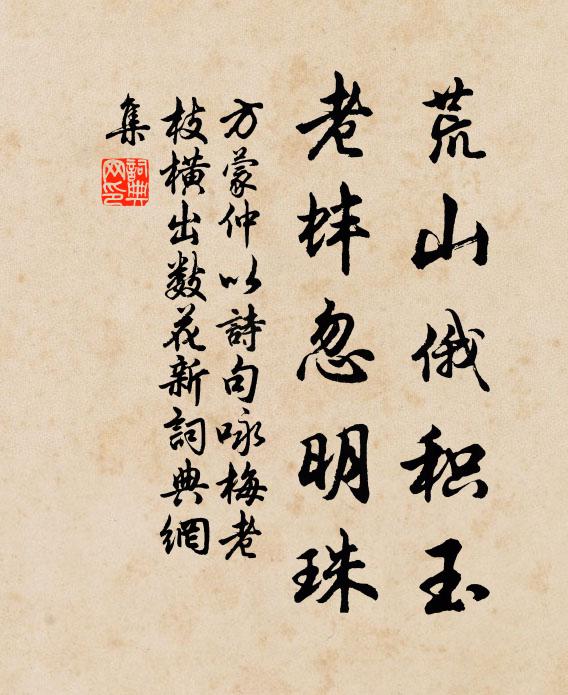 荒山俄积玉
老蚌忽明珠
方蒙仲以詩句咏梅老
枝橫出数花新詞典網
集
詞典
网印